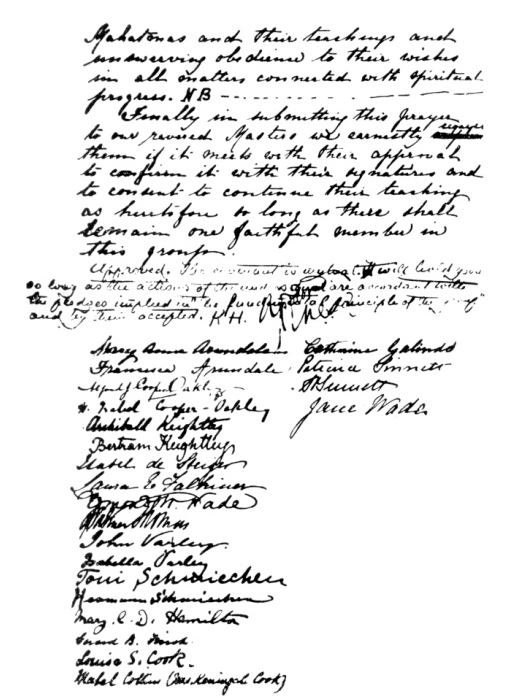 Mahatmas and their teachings and
unswerving obedience to their wishes
in all matters connected with spiritual
progress. NB
Finally in submitting this prayer
to our revised Masters we earnestly request
them if it meets with their approval
to confirm it with their signatures and
to consent to continue their teaching
as heretofore so long as there shall
remain one faithful member in
this group.
Approved. The covenant is mutual. It will hold good
so long as the actions of the undersigned are accordant with
the pledges implied in the fundamental principle of the
and by them accepted. K.H.
Mary Anne Arundale Catherine Galindo
Francesca Arundale Patience Sinnett
Alfred J Cooper Oakley APSinnett
H. Isabel Cooper-Oakley Jane Wade
Archibald Keightley
Bertram Keightley
Isabel de Steiger
Laura C Falkiner
Wade
John Varley.
Isabella Varley
Toni Schmiechen
Hermann Schmiechen
Mary. C. D. Hamilton
B. Finch
Louisa S. Cook.
Mabel Collins (Mrs Keningale Cook)